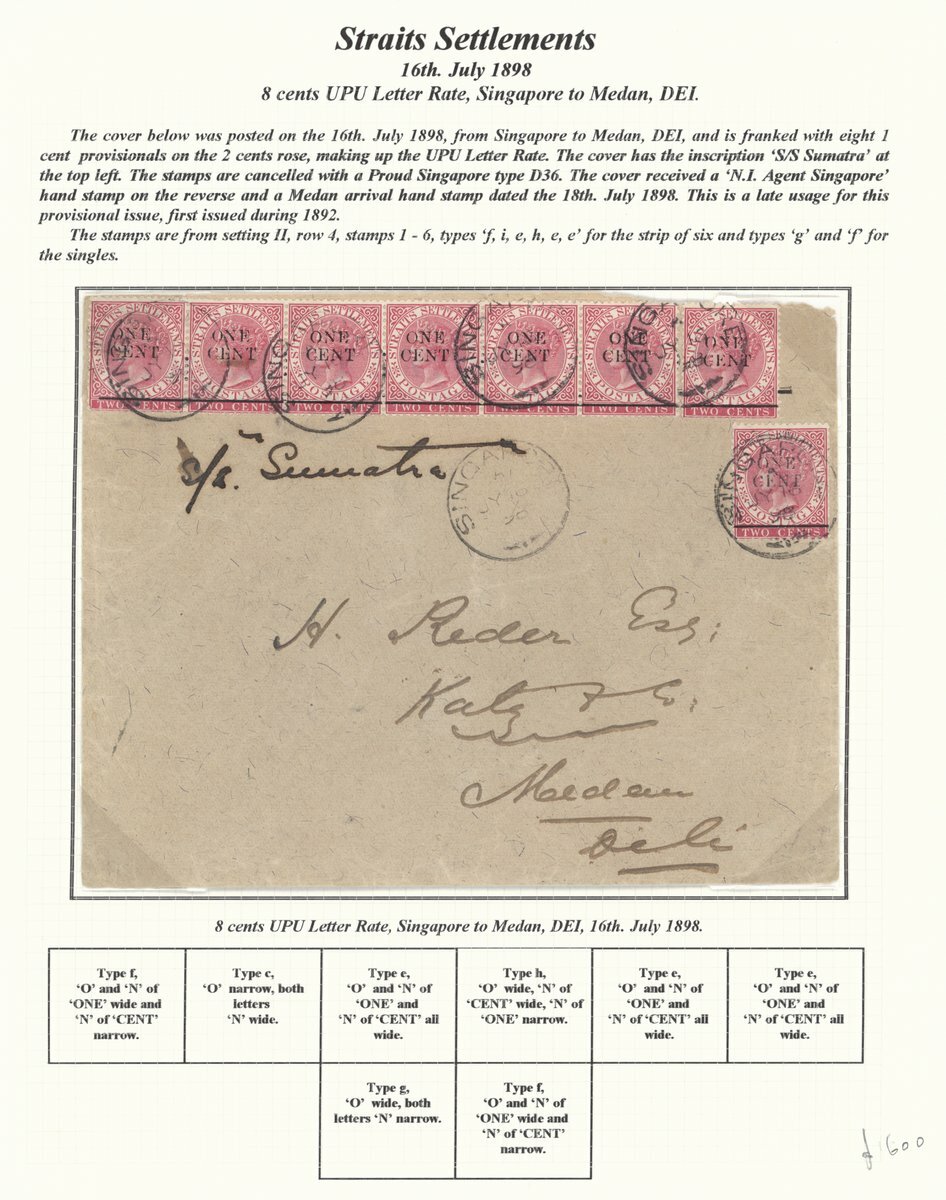 Straits Settlements
16th. July 1898
8 cents UPU Letter Rate, Singapore to Medan, DEI.
The cover below was posted on the 16th. July 1898, from Singapore to Medan, DEI, and is franked with eight 1
cent provisionals on the 2 cents rose, making up the UPU Letter Rate. The cover has the inscription ‘S/S Sumatra’ at
the top left. The stamps are cancelled with a Proud Singapore type D36. The cover received a ‘N.I. Agent Singapore’
hand stamp on the reverse and a Medan arrival hand stamp dated the 18th. July 1898. This is a late usage for this
provisional issue, first issued during 1892.
The stamps are from setting II, row 4, stamps 1 - 6, types ‘f, i, e, h, e, e’ for the strip of six and types ‘g’ and ‘f’ for
the singles.
STRAITS SETTLEMENTS
ONE
CENT
POSTAGE
TWO CENTS
STRAITS SETTLEMENTS
ONE
CENT
POSTAGE
TWO CENTS
STRAITS SETTLEMENTS
ONE
CENT
POSTAGE
TWO CENTS
STRAITS SETTLEMENTS
ONE
CENT
POSTAGE
TWO CENTS
STRAITS SETTLEMENTS
ONE
CENT
POSTAGE
TWO CENTS
STRAITS SETTLEMENTS
ONE
CENT
POSTAGE
TWO CENTS
STRAITS SETTLEMENTS
ONE
CENT
POSTAGE
TWO CENTS
STRAITS SETTLEMENTS
ONE
CENT
POSTAGE
TWO CENTS
"S/S. Sumatra"
H. Reder Esq:
Katz & Co:
Medan
Deli
8 cents UPU Letter Rate, Singapore to Medan, DEI, 16th. July 1898.
Type f,
‘O’ and ‘N’ of
‘ONE’ wide and
‘N’ of ‘CENT’
narrow.
Type c,
‘O’ narrow, both
letters
‘N’ wide.
Type e,
‘O’ and ‘N’ of
‘ONE’ and
‘N’ of ‘CENT’ all
wide.
Type h,
‘O’ wide, ‘N’ of
‘CENT’ wide, ‘N’ of
‘ONE’ narrow.
Type e,
‘O’ and ‘N’ of
‘ONE’ and
‘N’ of ‘CENT’ all
wide.
Type e,
‘O’ and ‘N’ of
‘ONE’ and
‘N’ of ‘CENT’ all
wide.
Type g,
‘O’ wide, both
letters ‘N’ narrow.
Type f,
‘O’ and ‘N’ of
‘ONE’ wide and
‘N’ of ‘CENT’
narrow.
£1600